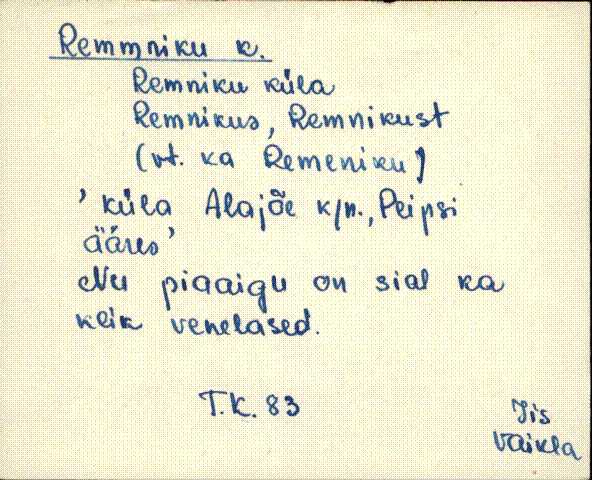 Remmniku k.
Remniku küla
Remnikus, Remnikust
(vt. ka Remeniku)
'küla Alajõe k/n., Peipsi
ääres'
Nu piaaigu on sial ka
keik venelased.
T.K. 83
Iis
Vaikla